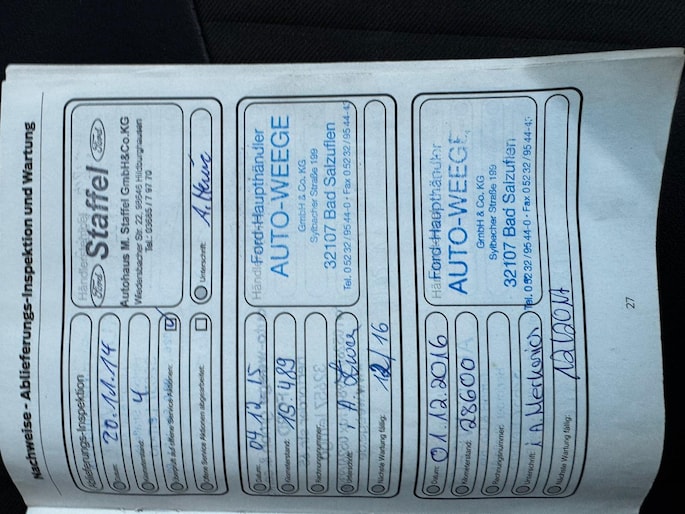 Nachweise - Ablieferungs-Inspektion und Wartung
Ablieferungs-Inspektion
Datum: 20.11.14
Kilometerstand: 4
Unterschrift:
Ford Staffel Ford
Autohaus M. Staffel GmbH&Co.KG
Wiedersbacher Str. 22, 98646 Hildburghausen
Tel.: 03685 / 7 97 70
Datum: 04.12.15
Kilometerstand: 15 489
Rechnungsnummer:
Unterschrift: i. A.
Nächste Wartung fällig: 12/16
Ford-Haupthändler
AUTO-WEEGE
GmbH & Co. KG
Sylbacher Straße 199
32107 Bad Salzuflen
Tel. 0 52 32 / 95 44-0 · Fax 0 52 32 / 95 44-4
Datum: 01.12.2016
Kilometerstand: 28600
Rechnungsnummer:
Unterschrift: i.A.
Nächste Wartung fällig: 12/2017
Ford-Haupthändler
AUTO-WEEGE
GmbH & Co. KG
Sylbacher Straße 199
32107 Bad Salzuflen
Tel. 0 52 32 / 95 44-0 · Fax 0 52 32 / 95 44-4
27